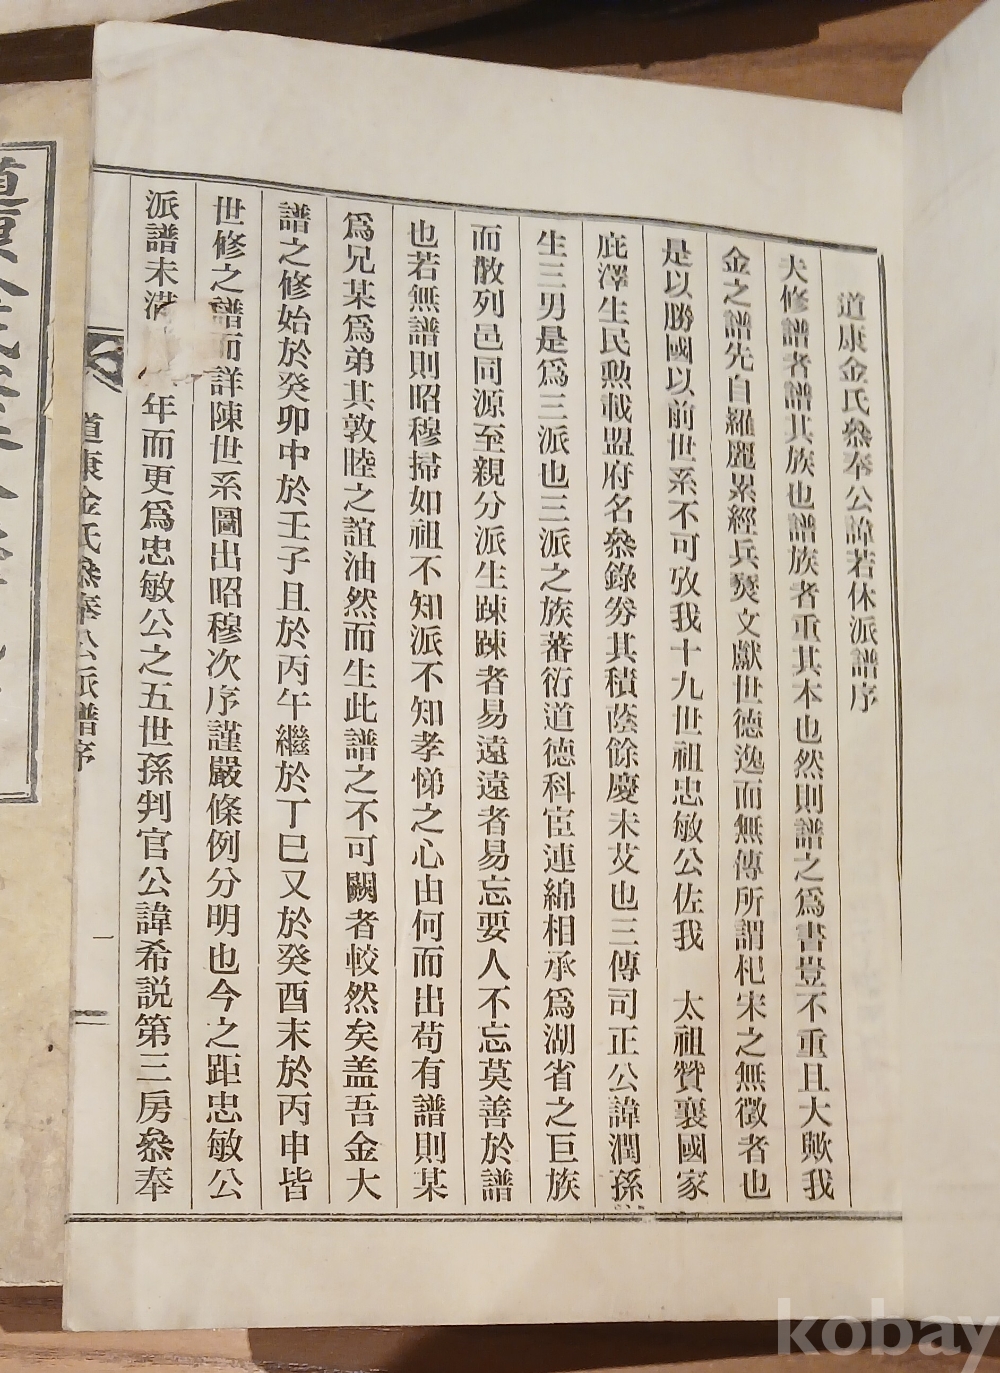 道康金氏叅奉公諱若休派譜序
夫修譜者譜其族也譜族者重其本也然則譜之爲書豈不重且大歟我
金之譜先自羅麗累經兵燹文獻世德逸而無傳所謂杞宋之無徵者也
是以勝國以前世系不可攷我十九世祖忠敏公佐我 太祖贊襄國家
庇澤生民勲載盟府名叅錄券其積蔭餘慶未艾也三傳司正公諱潤孫
生三男是爲三派也三派之族蕃衍道德科宦連綿相承爲湖省之巨族
而散列邑同源至親分派生踈踈者易遠遠者易忘要人不忘莫善於譜
也若無譜則昭穆掃如祖不知派不知孝悌之心由何而出苟有譜則某
爲兄某爲弟其敦睦之誼油然而生此譜之不可闕者較然矣盖吾金大
譜之修始於癸卯中於壬子且於丙午繼於丁巳又於癸酉末於丙申皆
世修之譜而詳陳世系圖出昭穆次序謹嚴條例分明也今之距忠敏公
派譜未滿 年而更爲忠敏公之五世孫判官公諱希説第三房叅奉
道康金氏叅奉公派譜序
一
kobay